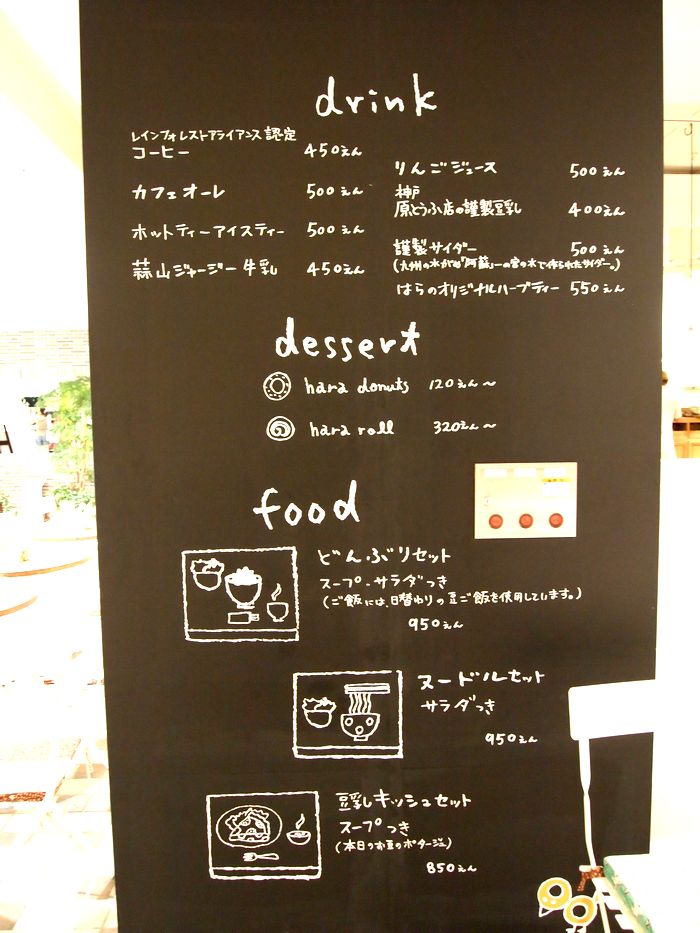 drink
レインフォレストアライアンス認定
コーヒー 450えん
カフェオーレ 500えん
ホットティーアイスティー 500えん
蒜山ジャージー牛乳 450えん
りんごジュース 500えん
神戸
原とうふ店の謹製豆乳 400えん
謹製サイダー 500えん
(九州の水がめ"阿蘇"一の宮の水で作られたサイダー。)
はらのオリジナルハーブティー 550えん
dessert
hara donuts 120えん〜
hara roll 320えん〜
food
どんぶりセット
スープ・サラダつき
(ご飯には、日替わりの豆ご飯を使用しています。)
950えん
ヌードルセット
サラダつき
950えん
豆乳キッシュセット
スープつき
(本日のお豆のポタージュ)
850えん